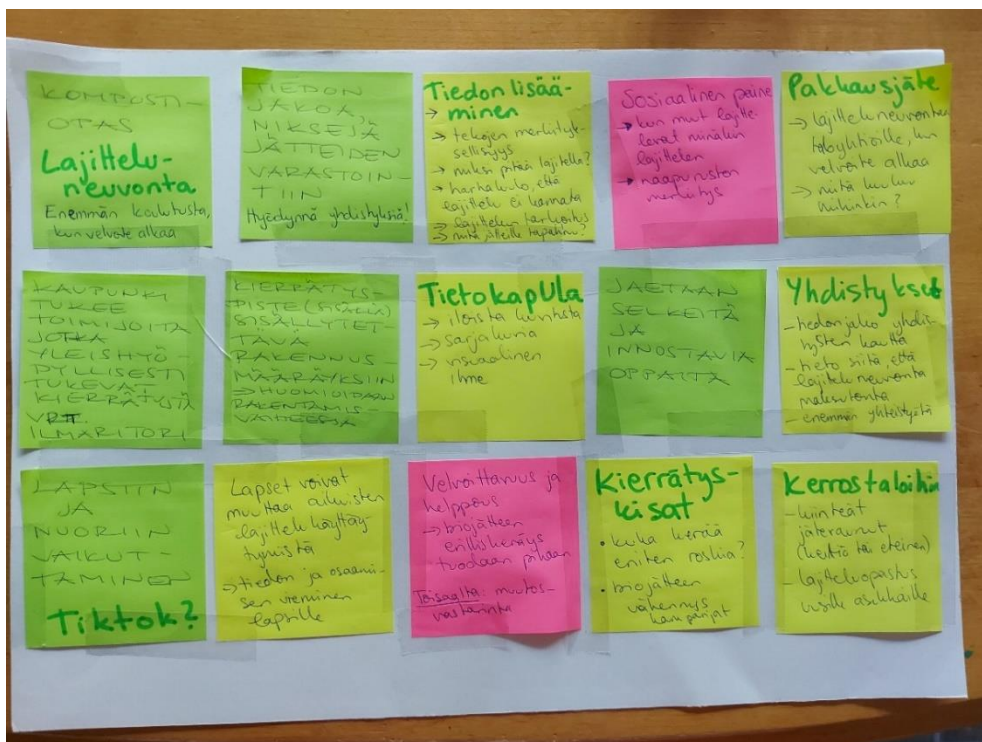 KOMPOSTI-
OPAS
Lajittelu-
neuvonta
Enemmän koulutusta,
kun velvoite alkaa
TIEDON
JAKOA,
NIKSEJÄ
JÄTTEIDEN
VARASTOIN-
TIIN
Hyödynnä yhdistyksiä!
Tiedon lisää-
minen
→ tekojen merkityk-
sellisyys
→ miksi pitää lajitella?
→ harhaluulo, että
lajittelu ei kannata
→ lajittelun tarkoitus
→ mitä jäteille tapahtuu?
Sosiaalinen paine
→ kun muut lajitte-
levat minäkin
lajittelen
→ naapuruston
merkitys
Pakkausjäte
→ lajitteluneuvontaa
taloyhtiöille, kun
velvoite alkaa
→ mitä kuuluu
mihinkin?
KAUPUNKI
TUKEE
TOIMIJOITA
JOTKA
YLEISHYÖ-
DYLLISESTI
TUKEVAT
KIERRÄTYSTÄ
VRT.
ILMARITORI
KIERRÄTYS-
PISTE (SISÄLLÄ)
SISÄLLYTET-
TÄVÄ
RAKENNUS-
MÄÄRÄYKSIIN
→ HUOMIOIDAAN
RAKENTAMIS-
VAIHEESSA
TietokapUla
→ iloista
→ sarjakuva
→ visuaalinen
ihme
JAETAAN
SELKEITÄ
JA
INNOSTAVIA
OPPAITA
Yhdistykset
- tiedonjako yhdis-
tysten kautta
- tieto siitä, että
lajitteluneuvonta
maksutonta
- enemmän yhteistyötä
LAPSIIN
JA
NUORIIN
VAIKUT-
TAMINEN
Tiktok?
Lapset voivat
muuttaa aikuisten
lajittelukäyttäy-
tymistä
→ tiedon ja osaami-
sen vieminen
lapsille
Velvoittavuus ja
helppous
→ biojätteen
erilliskeräys
tuodaan pihaan
Toisaalta: muutos-
vastarinta
Kierrätys-
kisat
• kuka kerää
eniten roskia?
• biojätteen
vähennys
kampanjat
Kerrostaloihin
- kiinteät
jäteraunut
(keittiö tai eteinen)
- lajitteluopastus
uusille asukkaille